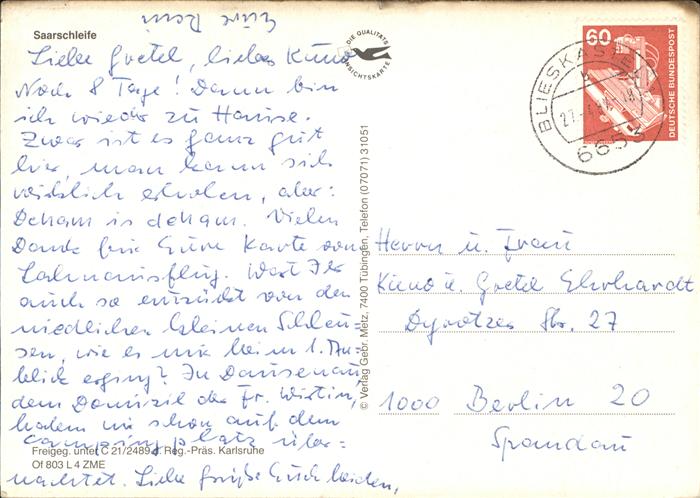 Eure Demi
Saarschleife
Liebe Gretel, lieber Kuno
Noch 8 Tage! Dann bin
ich wieder zu Hause.
Zwar ist es ganz gut
hier, man kann sich
wirklich erholen, aber:
Deham is deham. Vielen
Dank für Eure Karte vom
Lahnausflug. Wart Ihr
auch so entzückt von den
niedlichen kleinen Schleu-
sen, wie es mir beim 1. An-
blick erging? In Dausenau,
dem Domizil der Fr. Wirtin,
haben wir schon auf dem
Campingplatz über=
nachtet. Liebe Grüße Euch beiden,
Freigeg. unter C 21/2489 d. Reg.-Präs. Karlsruhe
Of 803 L 4 ZME
© Verlag Gebr. Metz, 7400 Tübingen, Telefon (07071) 31051
DIE QUALITÄTS
ANSICHTSKARTE
60
DEUTSCHE BUNDESPOST
BLIESKASTEL
6653
Herrn u. Frau
Kuno u. Gretel Ehrhardt
Dyrotzer Str. 27
1000 Berlin 20
Spandau